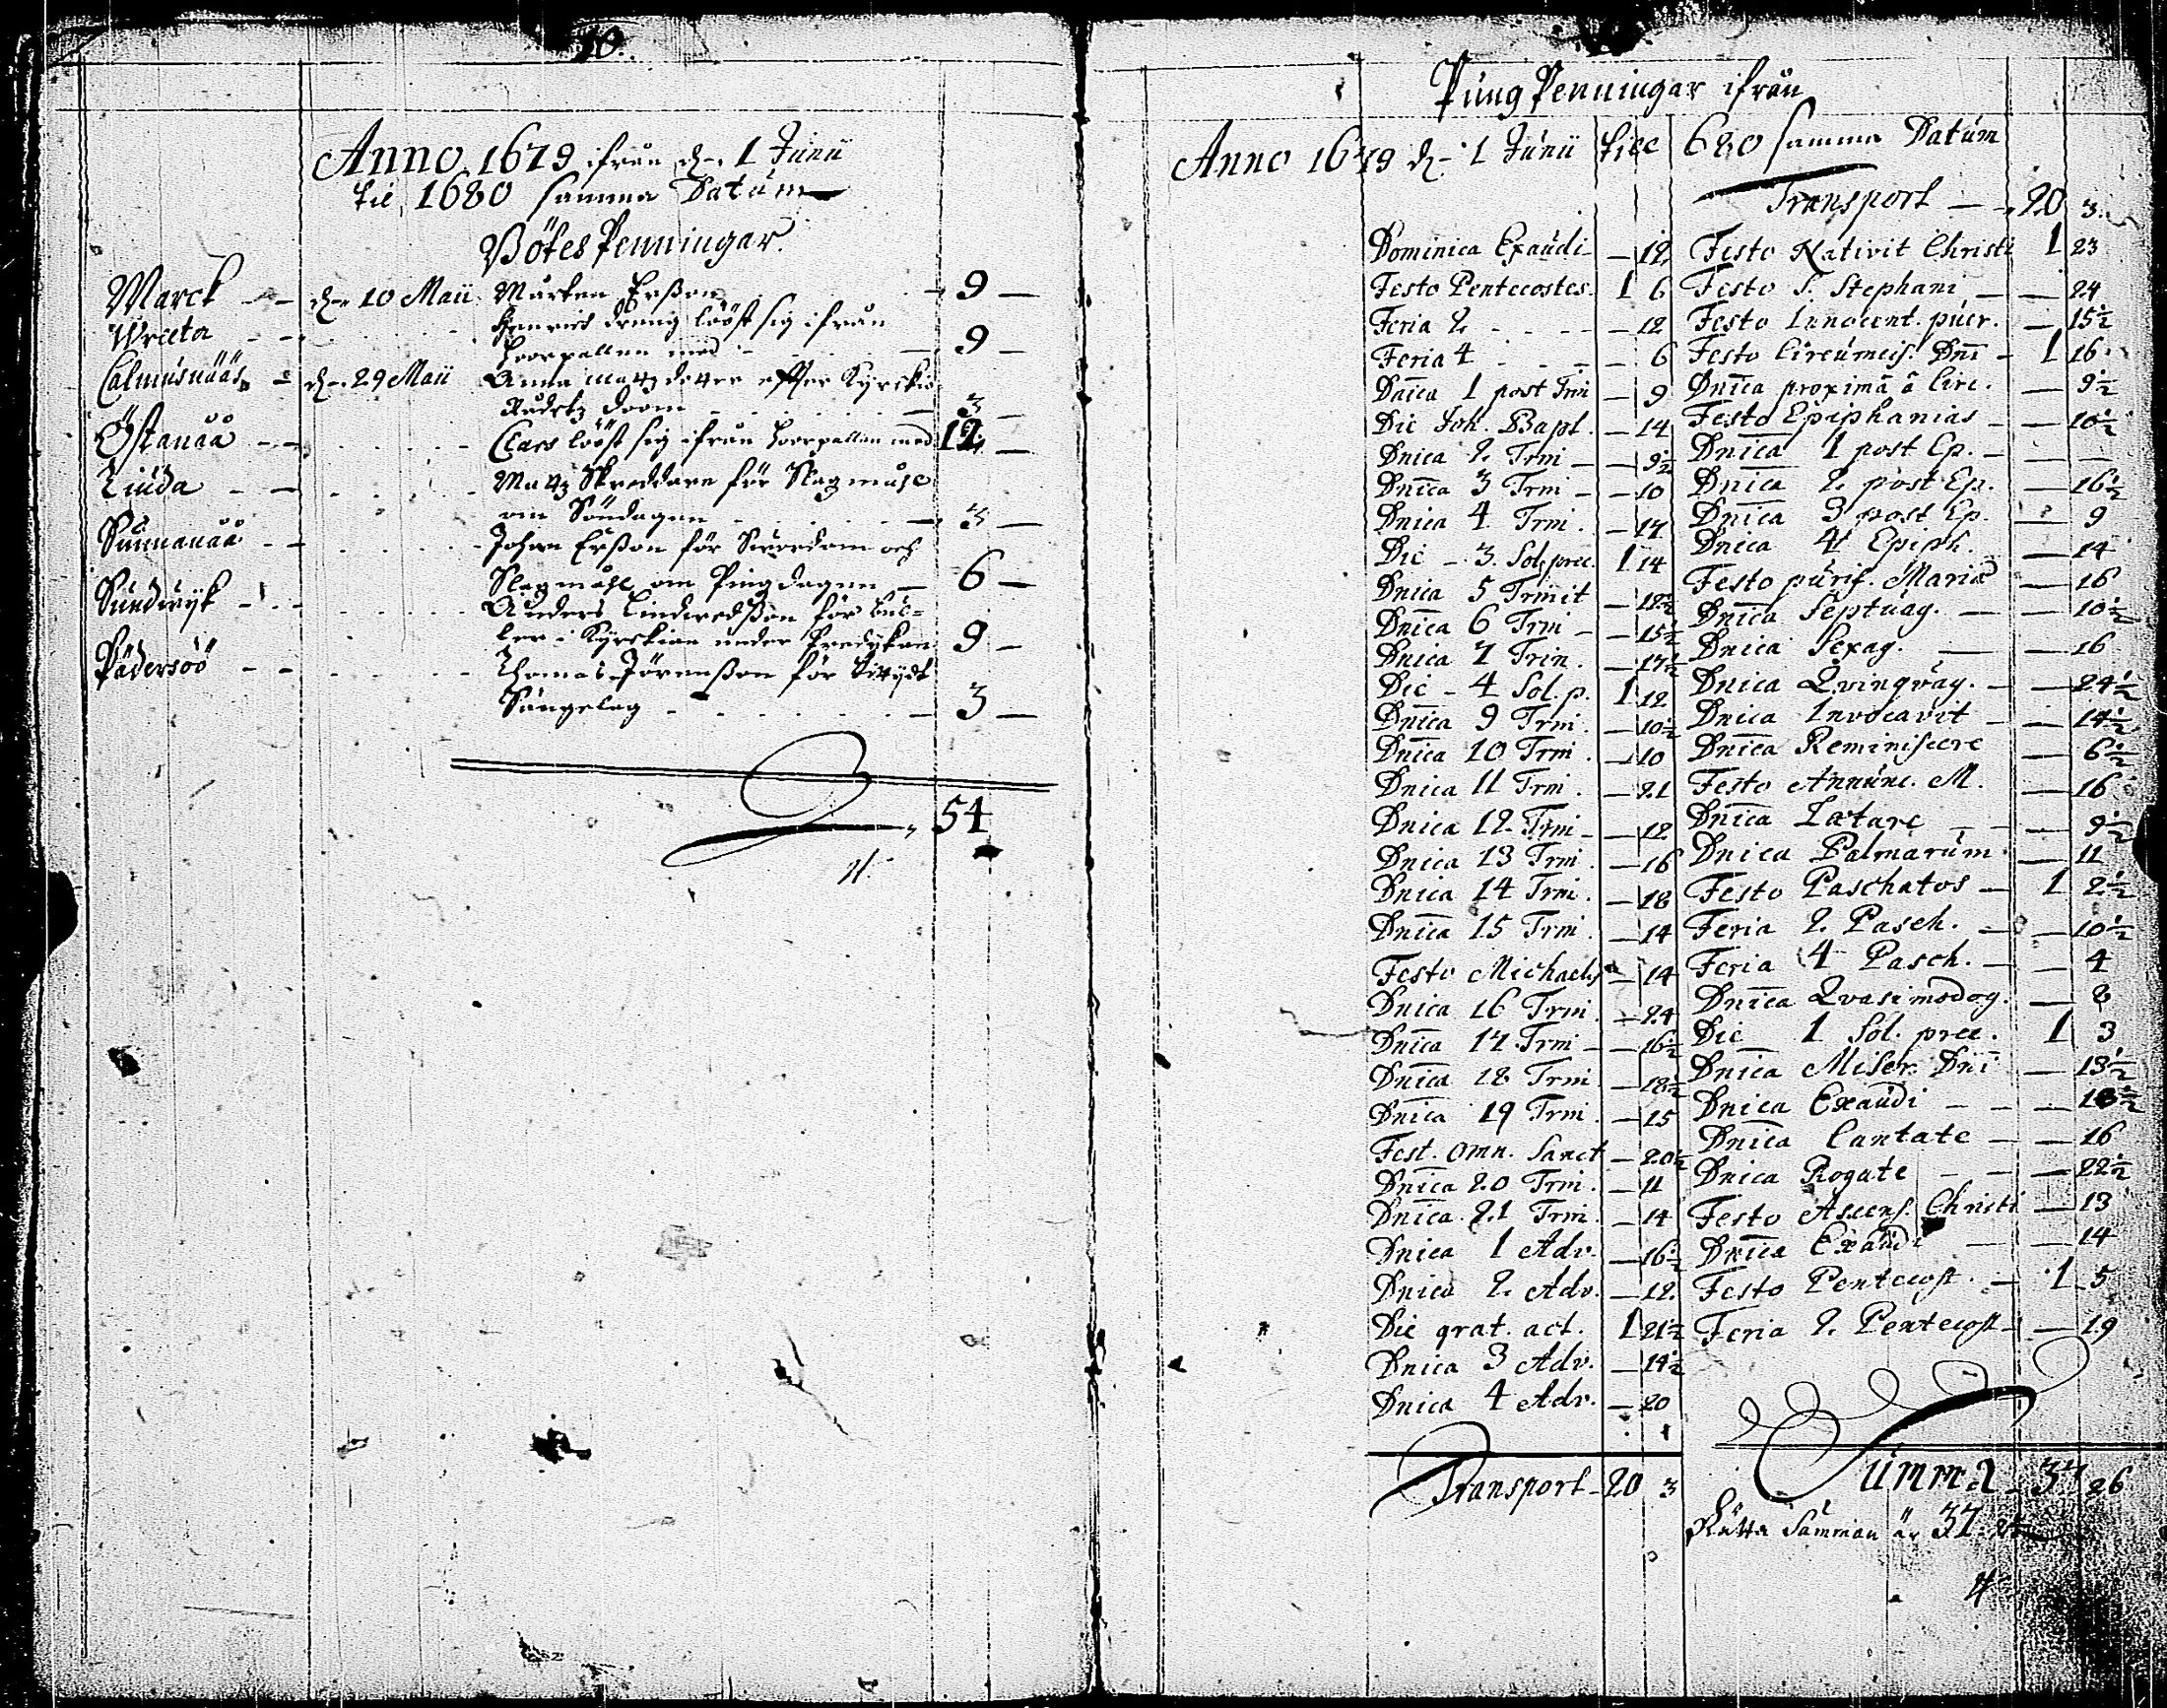 10.
Anno 1679 ifrån d. 1 Junii
til 1680 samma Datum
Bötes Penningar
Marck - - d. 10 Maii Mårten Erßon - 9 -
Wreeta - - Henrich dreng lööst sig ifrån
Hoorpallen med - 9 -
Calmusnääs - d. 29 Maii Anna Mattzdotter effter Kyrckio
Rådetz doom - 3 -
Östanåå - - Clars lööst sig ifrån hoorpallen med 12 -
Linda - - Mattz Skreddare för Slagmåhl
om Söndagen - 3 -
Sunnanåå - - Johan Erßon för Swordom och
Slagmåhl om Pingdagen - 6 -
Sundwyk - - Anders Lindwedßon för bul-
ler i Kyrckian under Predykan 9 -
Pädersöö - - Thomas Jörenßon för
Sängelag - 3 -
54
Pung Penningar ifrån
Anno 1679 d. 1 Junii till 680 samma Datum
Dominica Exaudi - - 12
Festo Pentecostes. 1 6
Feria 2 - - 12
Feria 4 - - 6
Dnica 1 post Trni - 9
Die Joh. Bapt. - 14
Dnica 2 Trni - - 9½
Dnica 3 Trni - - 10
Dnica 4 Trni. - 17
Die - 3. Sol. prec. 1 14
Dnica 5 Trinit - 12½
Dnica 6 Trin - - 15½
Dnica 7 Trin. - 17½
Die - 4 Sol. p. 1 12
Dnica 9 Trni. - 10½
Dnica 10 Trni. - 10
Dnica 11 Trni. - 21
Dnica 12 Trni - - 12
Dnica 13 Trni. - 16
Dnica 14 Trni. - 18
Dnica 15 Trni. - 14
Festo Michaelis - 14
Dnica 16 Trni. - 24
Dnica 17 Trni - - 16½
Dnica 18 Trni - 18½
Dnica 19 Trni. - 15
Fest. omn. Sanct - 20½
Dnica 20 Trni. - 11
Dnica 21 Trni. - 14
Dnica 1 Adv. - 16½
Dnica 2 Adv. - 12.
Die grat. act. 1 21½
Dnica 3 Adv. - 14½
Dnica 4 Adv. - 20
Transport - 20 3
Transport - - 20 3.
Festo Nativit Christi 1 23
Festo S. Stephani - - 24
Festo Innocent. puer. - 15½
Festo Circumcis. Dni - 1 16
Dnica proximâ â Circ. - 9½
Festo Epiphanias - - 10½
Dnica 1 post Ep. - - -
Dnica 2 post Ep. - 16½
Dnica 3 post Ep. - 9
Dnica 4 Epiph. - 14
Festo purif. Mariæ - 16
Dnica Septuag. - - 10½
Dnica Sexag. - - 16
Dnica Qvinqvag. - - 24½
Dnica Invocavit - - 14½
Dnica Reminiscere - 6½
Festo Annunc. M. - 16
Dnica Lætare - - 9½
Dnica Palmarum - 11
Festo Paschatos - 1 2½
Feria 2 Pasch. - - 10½
Feria 4 Pasch. - - 4
Dnica Qvasimodog. - 8
Die 1 Sol. prec. 1 3
Dnica Miser. Dni - 13½
Dnica Exaudi - -
Dnica Cantate - - 16
Dnica Rogate - - 22½
Festo Ascens. Christi - 13
Dnica Exaudi - - 14
Festo Pentecost. - 1 5
Feria 2 Pentecost - - 19
Summa - 37 26
Rätta Summan är 37.